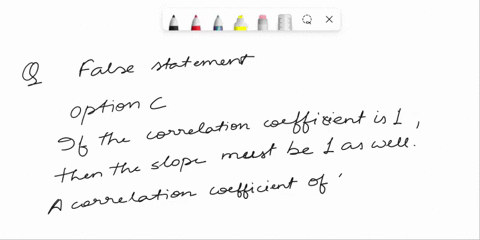 Q False statement
option C
If the correlation coefficient is 1,
then the slope must be 1 as well.
A correlation coefficient of